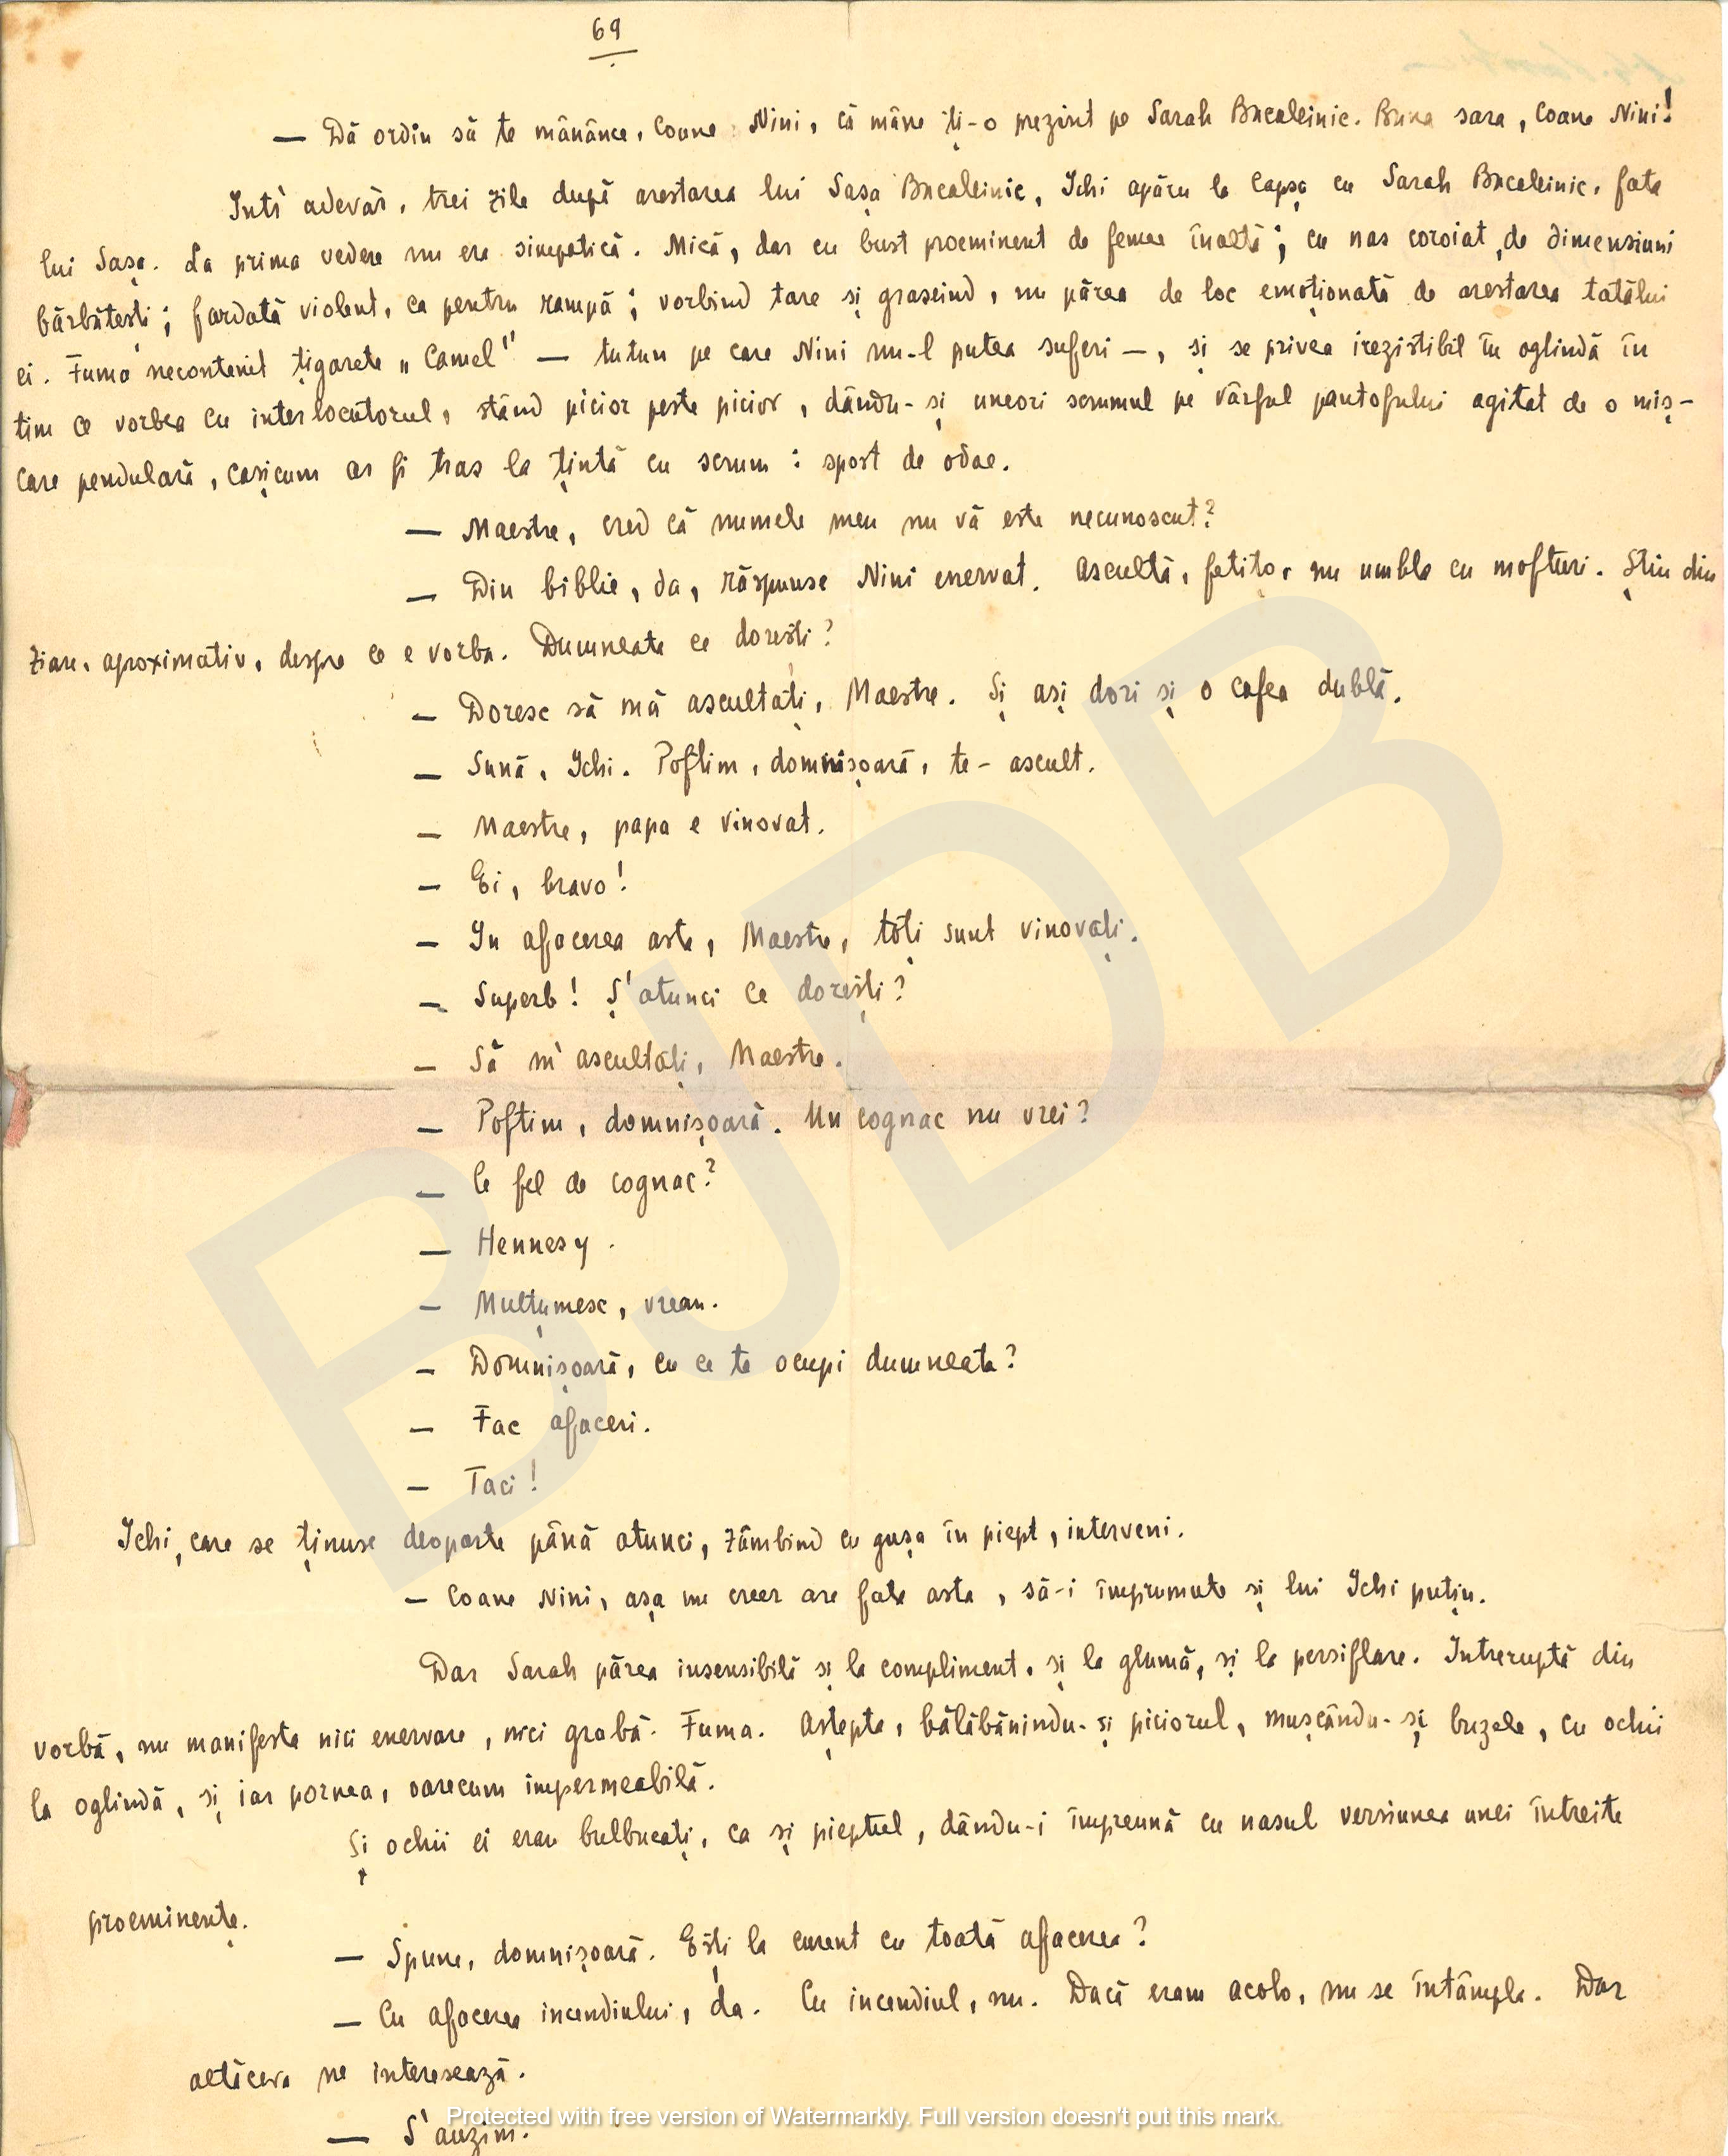 69
— Dă ordin să te mănânce, Coane Nini, că mâne ți-o prezint pe Sarah Bucaleinic. Buna sara, Coane Nini!
Intr'adevăr, trei zile după arestarea lui Sașa Bucaleinic, Ichi apăru la Capșa cu Sarah Bucaleinic, fata
lui Sașa. La prima vedere nu era simpatică. Mică, dar cu bust proeminent de femee înaltă; cu nas coroiat, de dimensiuni
bărbătești; fardată violent, ca pentru rampă; vorbind tare și graseind, nu părea de loc emoționată de arestarea tatălui
ei. Fuma necontenit țigarete „Camel" — tutun pe care Nini nu-l putea suferi —, și se privea irezistibil în oglindă în
timp ce vorbea cu interlocutorul, stând picior peste picior, dându-și uneori scrumul pe vârful pantofului agitat de o miș-
care pendulară, cașicum ar fi tras la țintă cu scrum: sport de odae.
— Maestre, cred că numele meu nu vă este necunoscut?
— Din biblie, da, răspunse Nini enervat. Ascultă, fetițo, nu umbla cu mofturi. Știu din
ziare, aproximativ, despre ce e vorba. Dumneata ce dorești?
— Doresc să mă ascultați, Maestre. Și ași dori și o cafea dublă.
— Sună, Ichi. Poftim, domnișoară, te-ascult.
— Maestre, papa e vinovat.
— Ei, bravo!
— In afacerea asta, Maestre, toți sunt vinovați.
— Superb! Ș'atunci ce dorești?
— Să m'ascultați, Maestre.
— Poftim, domnișoară. Un cognac nu vrei?
— Ce fel de cognac?
— Hennesy.
— Mulțumesc, vreau.
— Domnișoară, cu ce te ocupi dumneata?
— Fac afaceri.
— Taci!
Ichi, care se ținuse deoparte până atunci, zâmbind cu gușa în piept, interveni.
— Coane Nini, așa un creer are fata asta, să-i împrumute și lui Ichi puțin.
Dar Sarah părea insensibilă și la compliment, și la glumă, și la persiflare. Intreruptă din
vorbă, nu manifesta nici enervare, nici grabă. Fuma. Aștepta, bălăbănindu-și piciorul, mușcându-și buzele, cu ochii
la oglindă, și iar pornea, oarecum impermeabilă.
Și ochii ei erau bulbucați, ca și pieptul, dându-i împreună cu nasul versiunea unei întreite
proeminențe.
— Spune, domnișoară. Ești la curent cu toată afacerea?
— Cu afacerea incendiului, da. Cu incendiul, nu. Dacă eram acolo, nu se întâmpla. Dar
altăceva ne interesează.
— S'auzim.
Protected with free version of Watermarkly. Full version doesn't put this mark.
BJDB